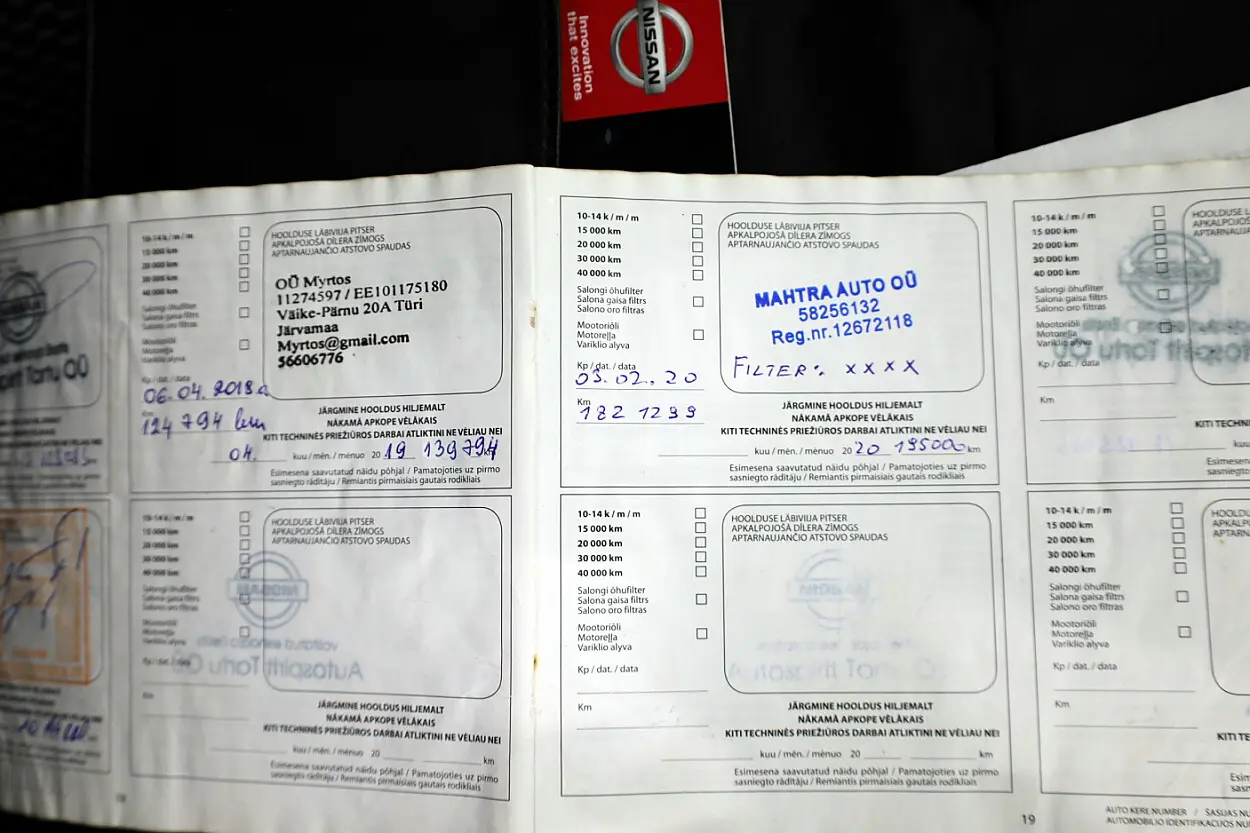 NISSAN
Innovation
that excites
10-14 k / m / m
15 000 km
20 000 km
30 000 km
40 000 km
Salongi õhufilter
Salona gaisa filtrs
Salono oro filtras
Mootoriõli
Motoreļļa
Variklio alyva
Kp / dat. / data
06.04. 2018a
Km
124 794 km
HOOLDUSE LÄBIVIIJA PITSER
APKALPOJOŠĀ DĪLERA ZĪMOGS
APTARNAUJANČIO ATSTOVO SPAUDAS
OÜ Myrtos
11274597 / EE101175180
Väike-Pärnu 20A Türi
Järvamaa
Myrtos@gmail.com
56606776
JÄRGMINE HOOLDUS HILJEMALT
NĀKAMĀ APKOPE VĒLĀKAIS
KITI TECHNINĖS PRIEŽIŪROS DARBAI ATLIKTINI NE VĖLIAU NEI
04. kuu / mēn. / mėnuo 20 19 139794
Esimesena saavutatud näidu põhjal / Pamatojoties uz pirmo
sasniegto rādītāju / Remiantis pirmaisiais gautais rodikliais
10-14 k / m / m
15 000 km
20 000 km
30 000 km
40 000 km
Salongi õhufilter
Salona gaisa filtrs
Salono oro filtras
Mootoriõli
Motoreļļa
Variklio alyva
Kp / dat. / data
03.02.20
Km
182 1299
HOOLDUSE LÄBIVIIJA PITSER
APKALPOJOŠĀ DĪLERA ZĪMOGS
APTARNAUJANČIO ATSTOVO SPAUDAS
MAHTRA AUTO OÜ
58256132
Reg.nr.12672118
FILTER: x x x x
JÄRGMINE HOOLDUS HILJEMALT
NĀKAMĀ APKOPE VĒLĀKAIS
KITI TECHNINĖS PRIEŽIŪROS DARBAI ATLIKTINI NE VĖLIAU NEI
kuu / mēn. / mėnuo 20 20 195000 km
Esimesena saavutatud näidu põhjal / Pamatojoties uz pirmo
sasniegto rādītāju / Remiantis pirmaisiais gautais rodikliais
10-14 k / m / m
15 000 km
20 000 km
30 000 km
40 000 km
Salongi õhufilter
Salona gaisa filtrs
Salono oro filtras
Mootoriõli
Motoreļļa
Variklio alyva
Kp / dat. / data
Km
10-14 k / m / m
15 000 km
20 000 km
30 000 km
40 000 km
Kp / dat. / data
Km
HOOLDUSE LÄBIVIIJA PITSER
APKALPOJOŠĀ DĪLERA ZĪMOGS
APTARNAUJANČIO ATSTOVO SPAUDAS
JÄRGMINE HOOLDUS HILJEMALT
NĀKAMĀ APKOPE VĒLĀKAIS
KITI TECHNINĖS PRIEŽIŪROS DARBAI ATLIKTINI NE VĖLIAU NEI
kuu / mēn. / mėnuo 20 km
Esimesena saavutatud näidu põhjal / Pamatojoties uz pirmo
sasniegto rādītāju / Remiantis pirmaisiais gautais rodikliais
10-14 k / m / m
15 000 km
20 000 km
30 000 km
40 000 km
Salongi õhufilter
Salona gaisa filtrs
Salono oro filtras
Mootoriõli
Motoreļļa
Variklio alyva
Kp / dat. / data
Km
HOOLDUSE LÄBIVIIJA PITSER
APKALPOJOŠĀ DĪLERA ZĪMOGS
APTARNAUJANČIO ATSTOVO SPAUDAS
JÄRGMINE HOOLDUS HILJEMALT
NĀKAMĀ APKOPE VĒLĀKAIS
KITI TECHNINĖS PRIEŽIŪROS DARBAI ATLIKTINI NE VĖLIAU NEI
kuu / mēn. / mėnuo 20 km
Esimesena saavutatud näidu põhjal / Pamatojoties uz pirmo
sasniegto rādītāju / Remiantis pirmaisiais gautais rodikliais
10-14 k / m / m
15 000 km
20 000 km
30 000 km
40 000 km
Salongi õhufilter
Salona gaisa filtrs
Salono oro filtras
Mootoriõli
Motoreļļa
Variklio alyva
Kp / dat. / data
Km
19
AUTO KERE NUMBER